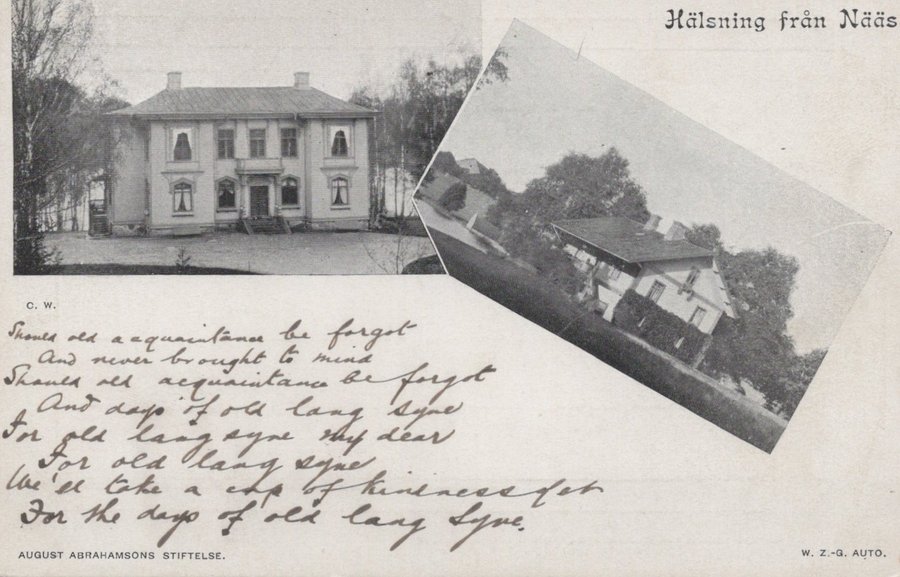 Hälsning från Nääs
C. W.
Should old acquaintance be forgot
And never brought to mind
Should old acquaintance be forgot
And days of old lang syne
For old lang syne my dear
For old lang syne
We'll take a cup of kindness yet
For the days of old lang Syne.
AUGUST ABRAHAMSONS STIFTELSE.
W. Z.-G. AUTO.